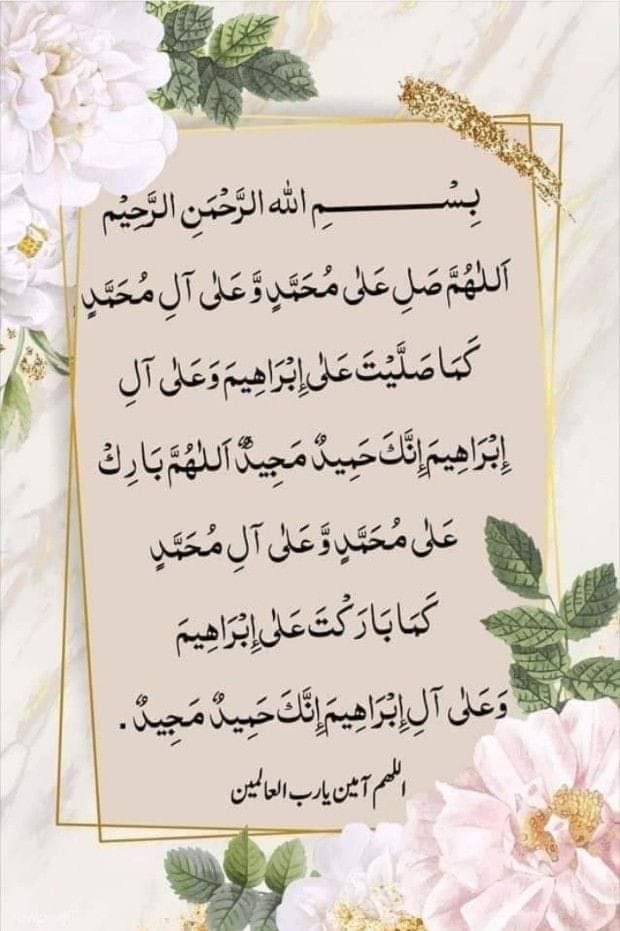 بِسْــــــمِ اللهِ الرَّحْمَنِ الرَّحِيْمِ
اَللهُمَّ صَلِ عَلٰى مُحَمَّدٍ وَّعَلٰى آلِ مُحَمَّدٍ
كَمَا صَلَّيْتَ عَلٰى إِبْرَاهِيمَ وَعَلٰى آلِ
إِبْرَاهِيمَ إِنَّكَ حَمِيدٌ مَجِيدٌ اَللهُمَّ بَارِكْ
عَلٰى مُحَمَّدٍ وَّعَلٰى آلِ مُحَمَّدٍ
كَمَا بَارَكْتَ عَلٰى إِبْرَاهِيمَ
وَعَلٰى آلِ إِبْرَاهِيمَ إِنَّكَ حَمِيدٌ مَجِيدٌ .
اللهم آمين يارب العالمين